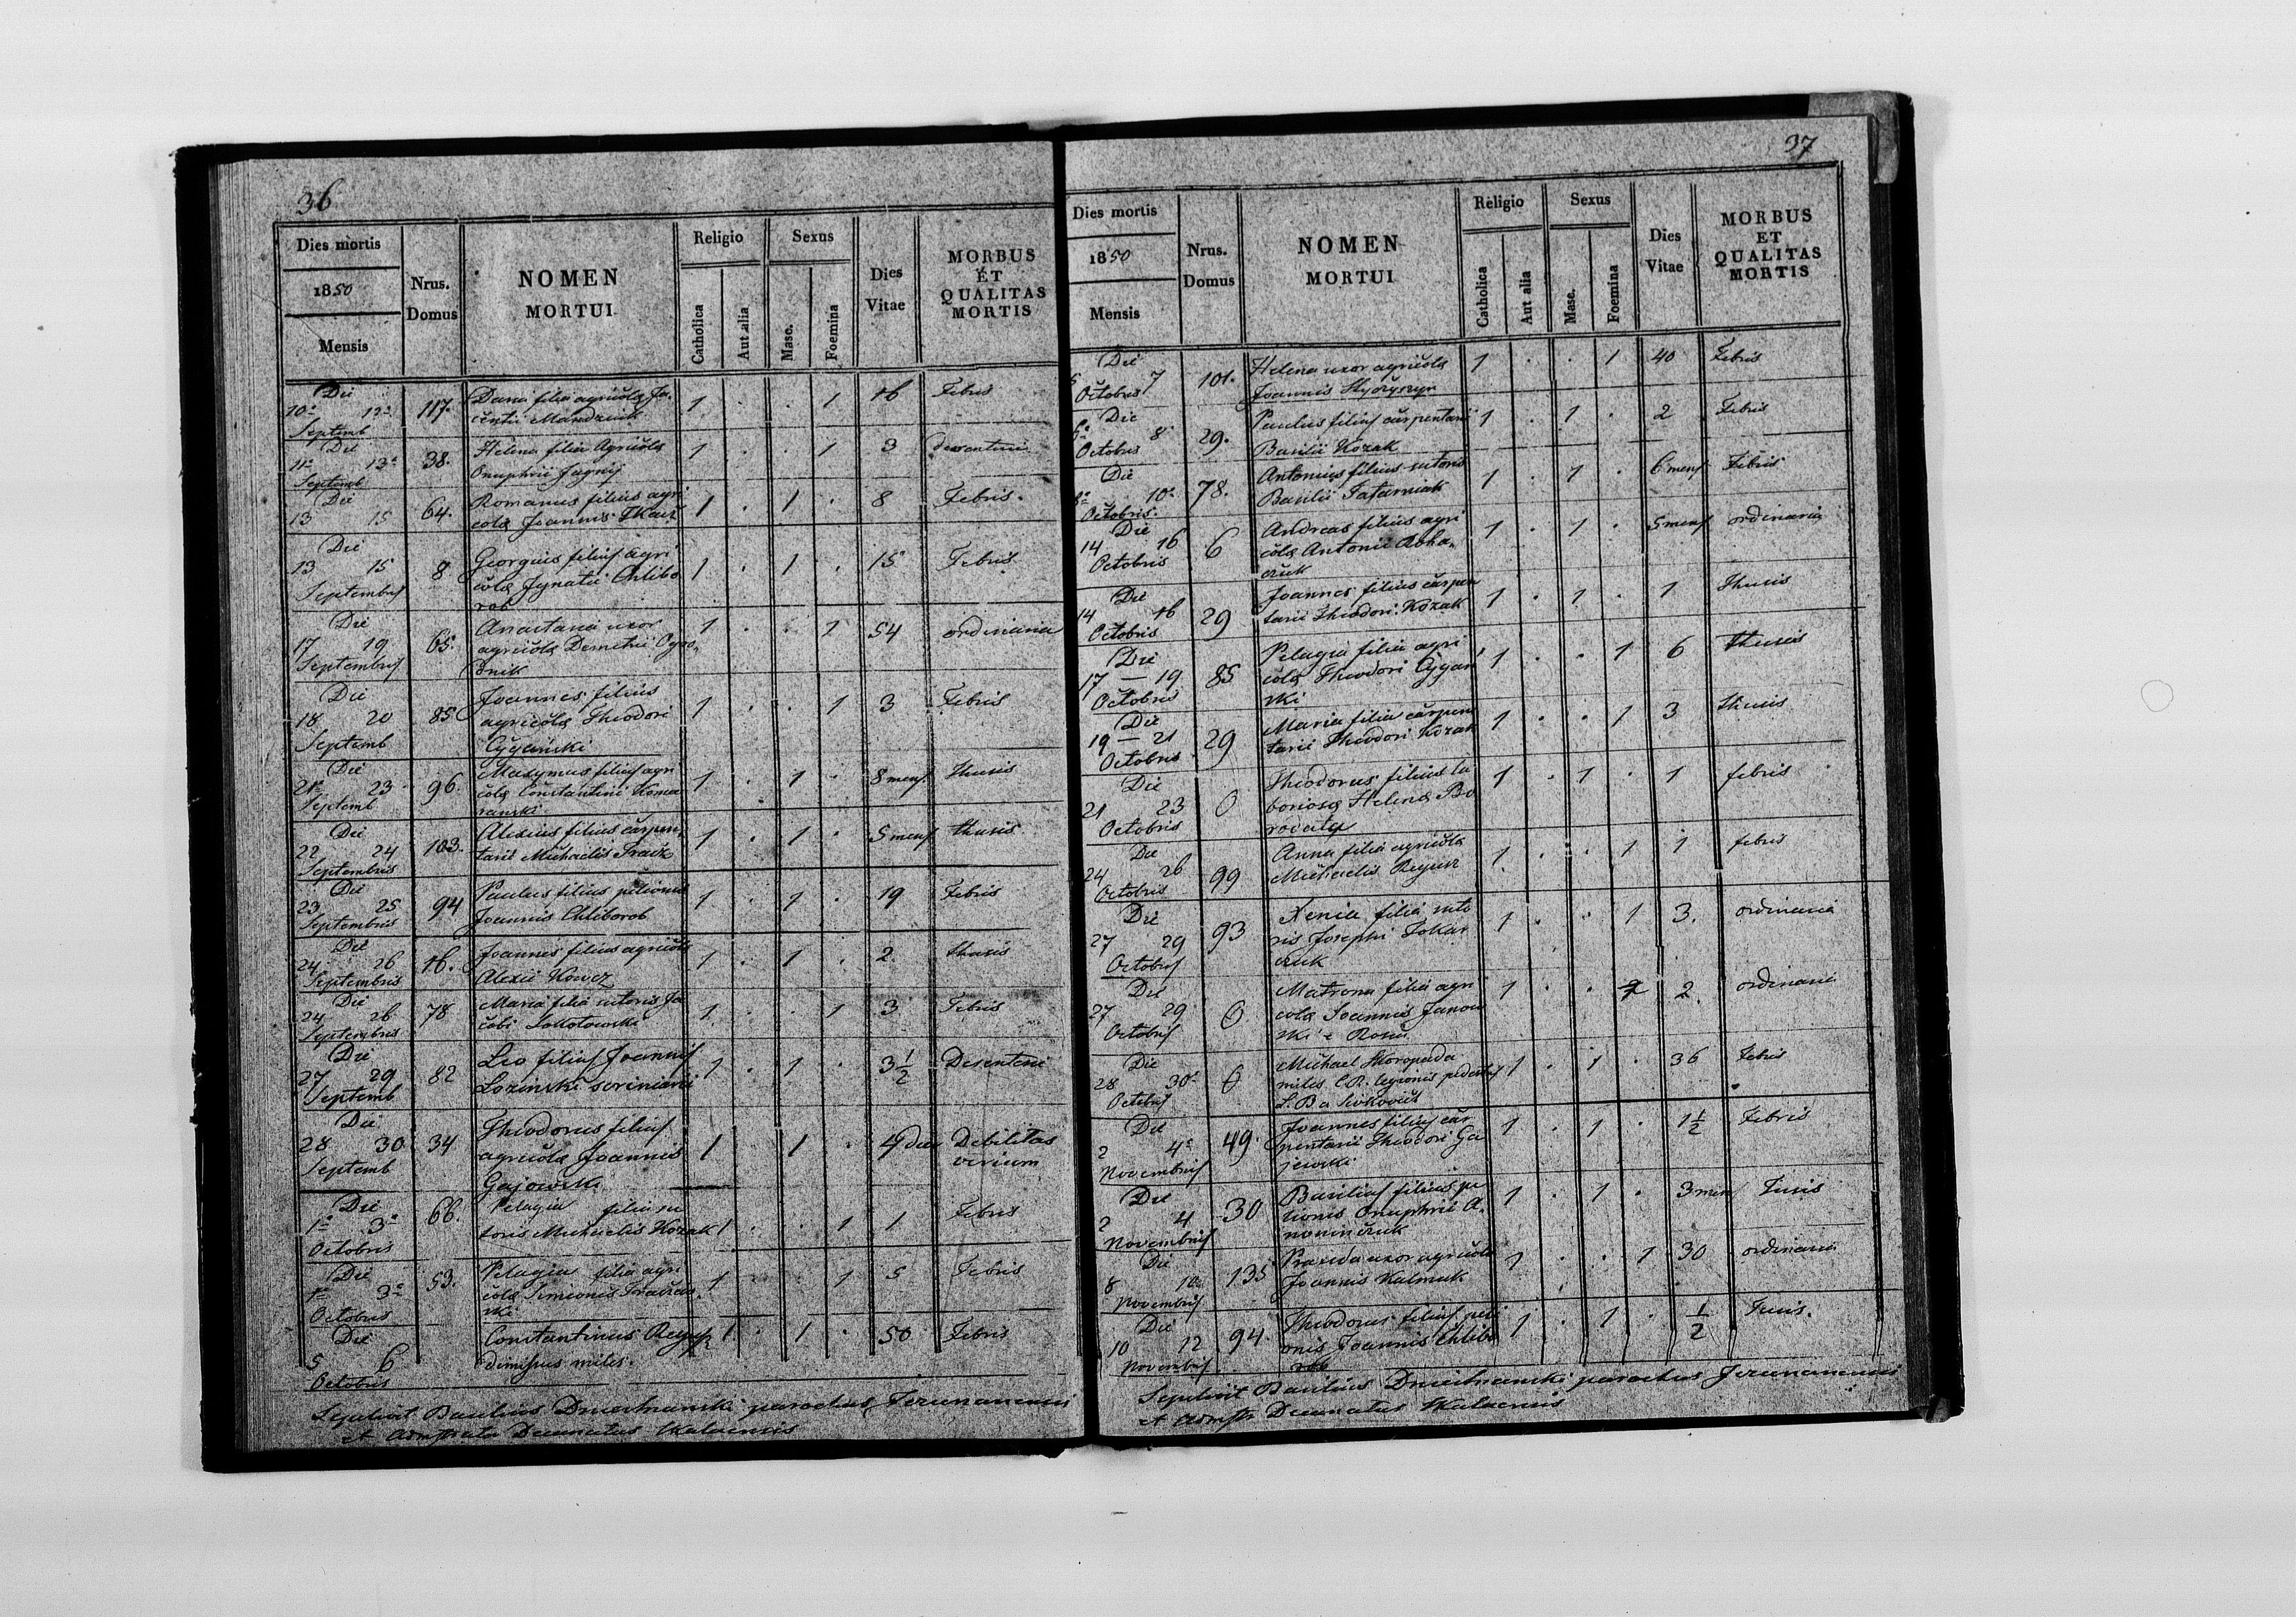 36
Dies mortis
1850
Mensis
Nrus.
Domus
NOMEN
MORTUI
Religio
Catholica
Aut alia
Sexus
Masc.
Foemina
Dies
Vitae
MORBUS
ET
QUALITAS
MORTIS
Die
10a 12a 117. Daria filia agricolæ Ja. 1 . . 1 16 Febris
Septemb
Die
11a 13a 38. Helena filia Agricolæ 1 . . 1 3
Septemb Onuphrii
Die
13 15 64. Romanus filius agri 1 . 1 . 8 Febris.
colæ Joannis Tkacz
Die
13 15 8 Georgius filius agri 1 . 1 . 15 Febris
Septembris colæ Ignatii Chlibo
rob
Die
17 19 65. Anastasia uxor 1 . . 1 54 ordinaria
Septembris agricolæ Demetrii
Die
18 20 85 Joannes filius 1 . . 1 3 Febris
Septemb agricolæ Theodori
Cyganski
Die
21a 23 96. Maxymus filius agri 1 . 1 . 8 mens thusis
Septemb colæ Constantini
Die
22 24 103. Alexius filius carpen 1 . 1 . 5 mens thusis
Septembris tarii Michaelis
Die
23 25 94 Paulus filius pelionis 1 . 1 . 19 Febris
Septembris Joannis Chliborob
Die
24 26 16. Joannes filius agricolæ 1 . 1 . 2 thusis
Septembris Alexii
Die
24 26 78 Maria filia sutoris Ja 1 . . 1 3 Febris
Septembris cobi Sokołowski
Die
27 29 82 Leo filius Joannis 1 . 1 . 3 1/2 Desenteri
Septemb Lozinski scriniarii
Die
28 30 34 Theodorus filius 1 . 1 . 4 dies Debilitas
Septemb agricolæ Joannis virium
Gajowski
Die
1a 3a 66. Pelagia filia su 1 . . 1 1 Febris
Octobris toris Michaelis Kozak
Die
1a 3a 53. Pelagia filia agri 1 . . 1 5 Febris
Octobris colæ Simeonis
Die
5 6 Constantinus 1 . 1 . 50 Febris
Octobris dimissus miles.
Sepelivit Basilius parochus
et Decanatus
37
Dies mortis
1850
Mensis
Nrus.
Domus
NOMEN
MORTUI
Religio
Catholica
Aut alia
Sexus
Masc.
Foemina
Dies
Vitae
MORBUS
ET
QUALITAS
MORTIS
Die
7 101. Helena uxor agricolæ 1 . . 1 40 Febris
Octobris Joannis
Die
8 29. Paulus filius carpentarii 1 . 1 . 2 Febris
Octobris Basilii Kozak
Die
8a 10a 78. Antonius filius sutoris 1 . 1 . 6 mens Febris
Octobris Basilii Tatarniak
Die
14 16 6 Andreas filius agri 1 . 1 . 5 mens ordinaria
Octobris colæ Antonii
czuk
Die
14 16 29 Joannes filius carpen 1 . 1 . 1 thusis
Octobris tarii Theodori Kozak
Die
17 — 19 85 Pelagia filia agri 1 . . 1 6 thusis
Octobris colæ Theodori Cygań
ski
Die
19 — 21 29 Maria filia carpen 1 . . 1 3 thusis
Octobris tarii Theodori Kozak
Die
21 23 0 Theodorus filius la 1 . 1 . 1 febris
Octobris boriosæ Helenæ Bo
Die
24 26 99 Anna filia agricolæ 1 . . 1 1 febris
Octobris Michaelis
Die
27 29 93 Xenia filia suto 1 . . 1 3. ordinaria
Octobris ris Josephi Tokar
czuk
Die
27 29 0 Matrona filia agri 1 . . 1 2. ordinaria
Octobris colæ Joannis Janow
ski
Die
28 30a 0 Michael Skoropada 1 . 1 . 36 Febris
Octobris miles C.R. legionis
Die
2 4a 49. Joannes filius car 1 . 1 . 1 1/2 Febris
Novembris pentarii Theodori Ga
jewski
Die
2 4 30 Basilius filius pe 1 . 1 . 3 mens Tusis
Novembris lionis Onuphrii
Die
8 10 135 uxor agricolæ 1 . . 1 30 ordinaria
Novembris Joannis Kalmuk
Die
10 12 94 Theodorus filius peli 1 . 1 . 1/2 Tusis.
Novembris onis Joannis Chlibo
rob
Sepelivit Basilius parochus
et Decanatus